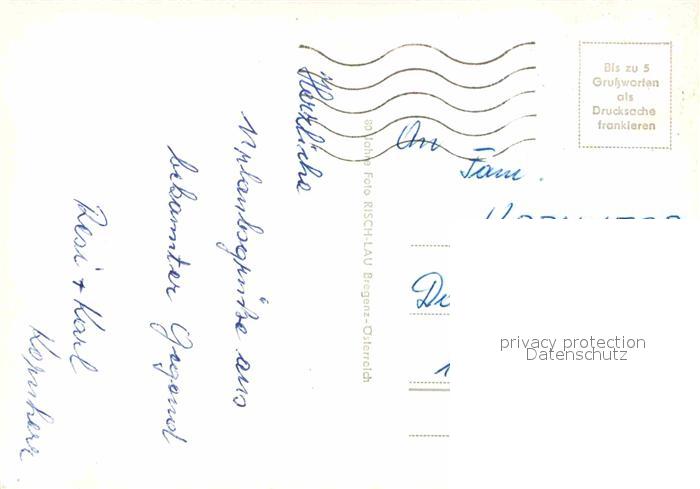 Herzliche
Urlaubsgrüße aus
bekannter Gegend
Resi + Karl
80 Jahre Foto RISCH-LAU Bregenz-Österreich
Bis zu 5
Grußworten
als
Drucksache
frankieren
An
Fam.
privacy protection
Datenschutz